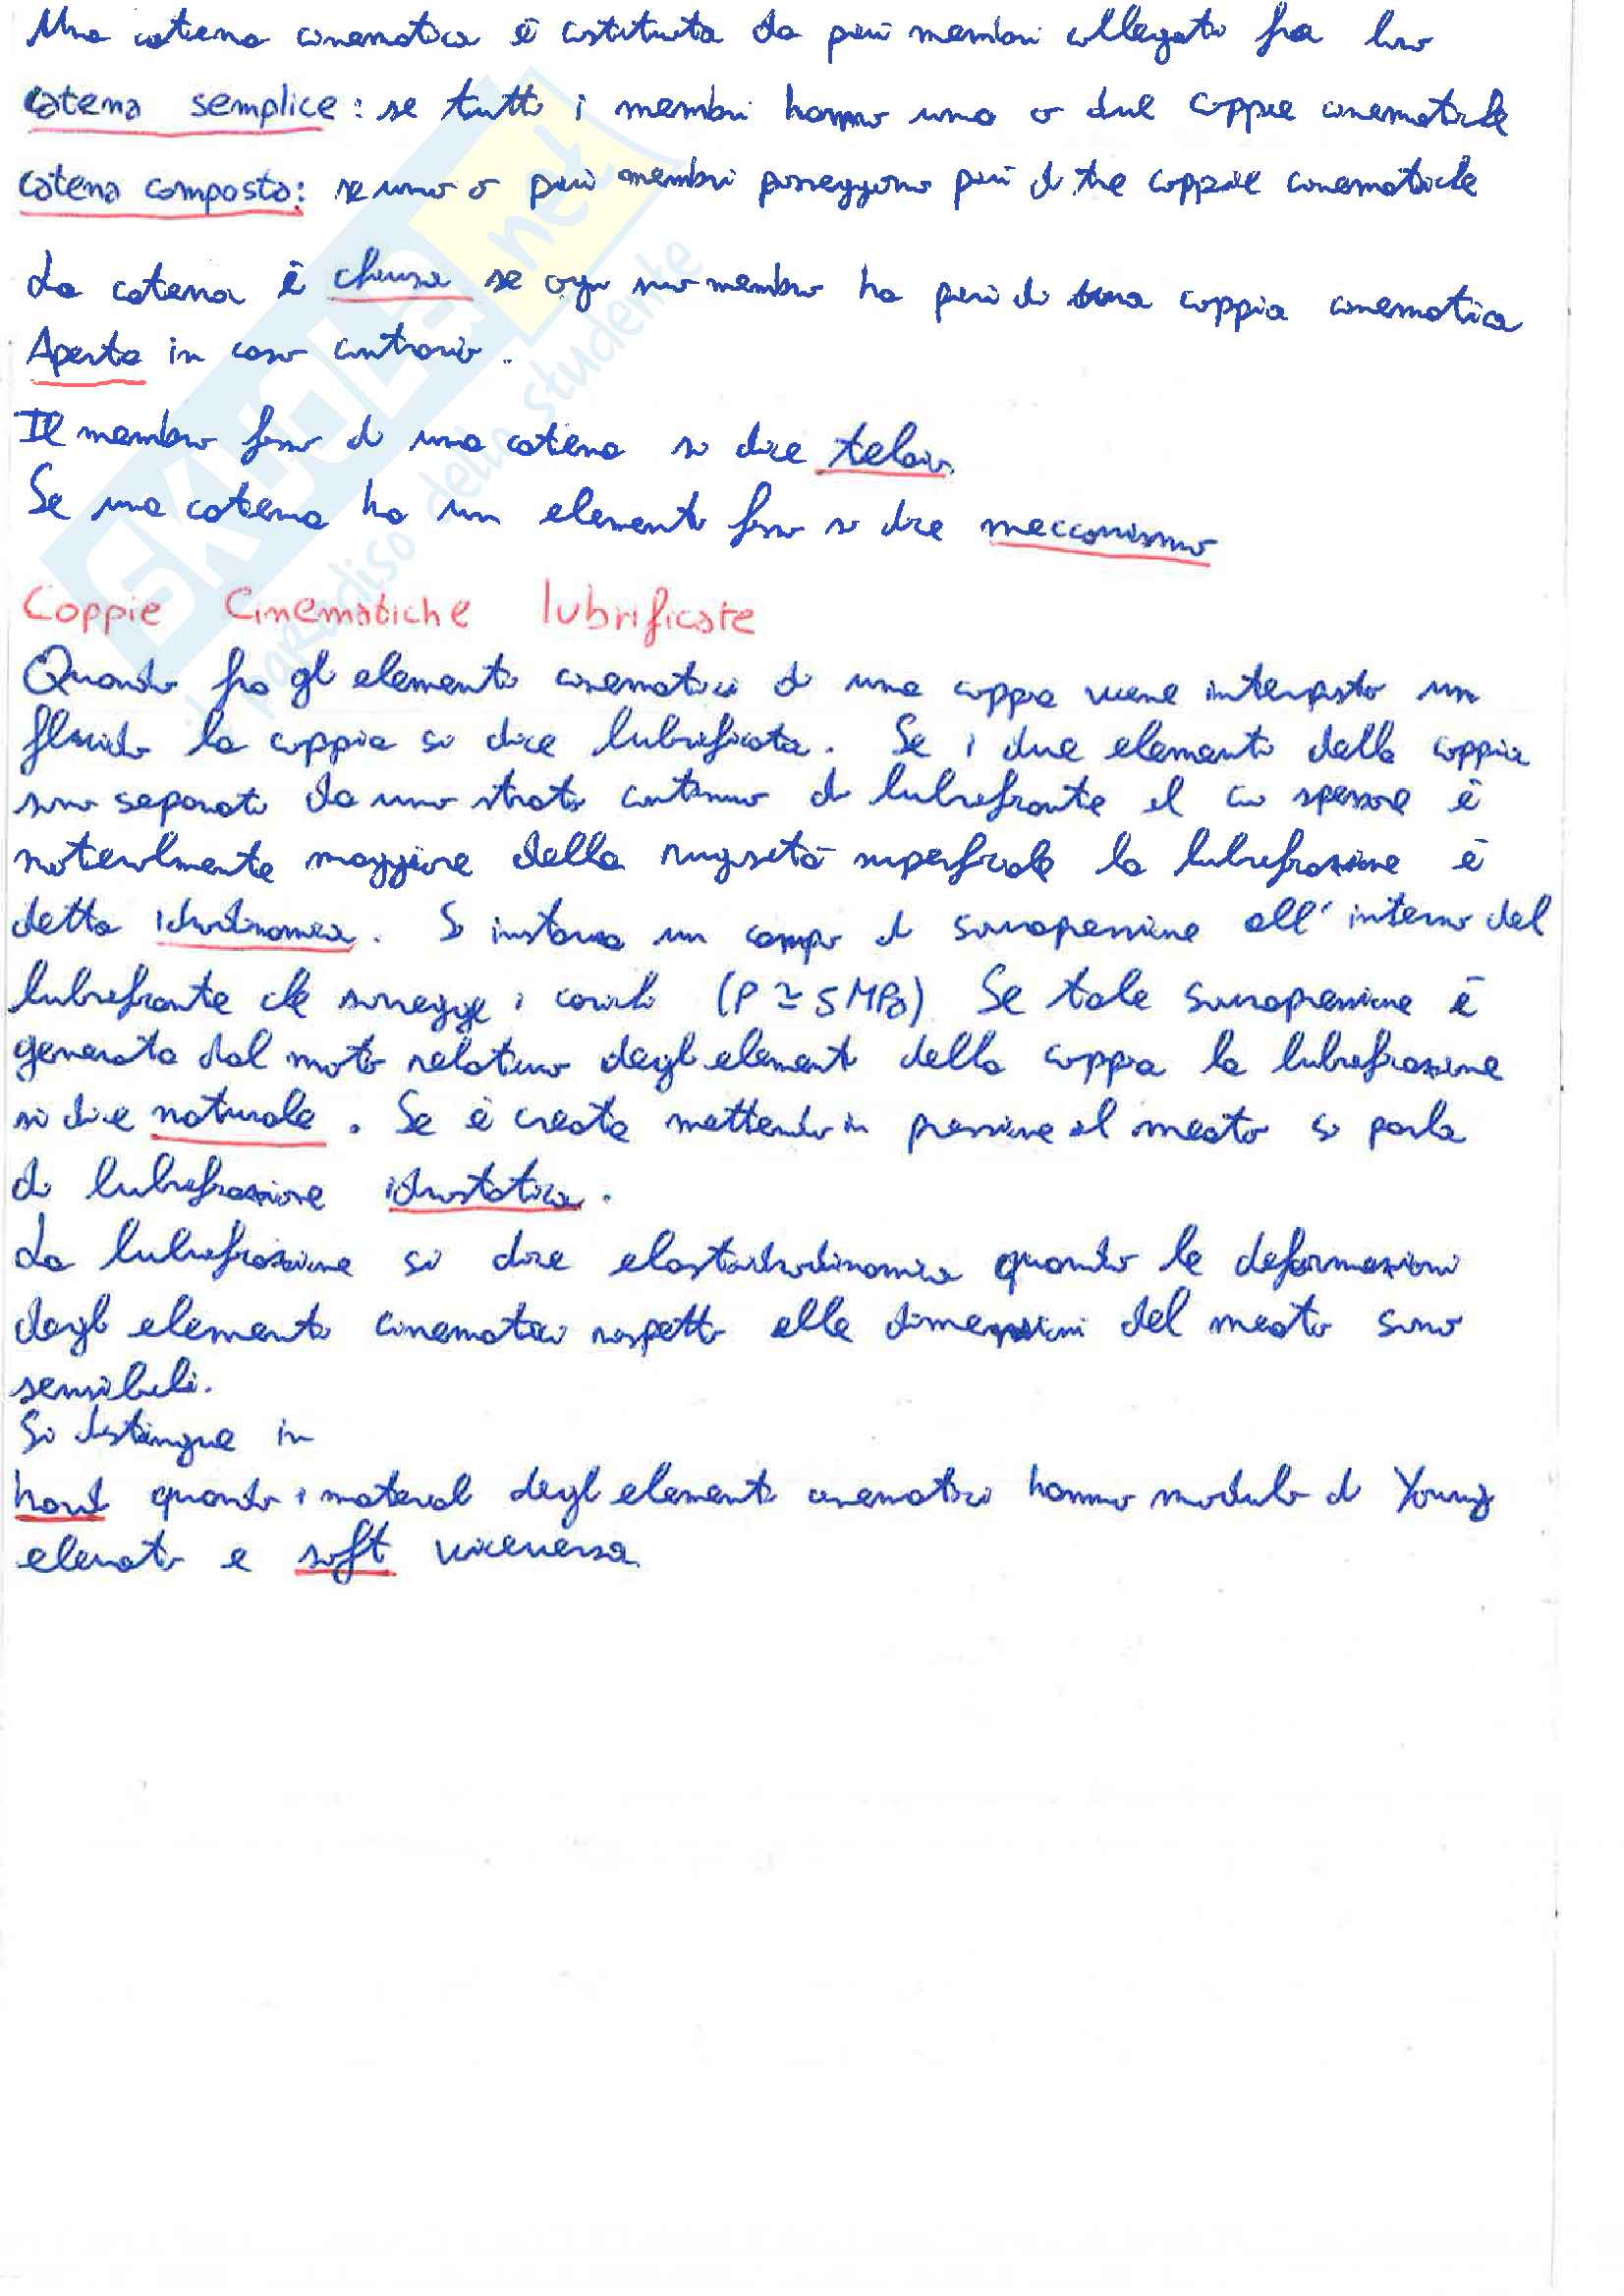 Una catena cinematica è costituita da più membri collegati fra loro
catena semplice: se tutti i membri hanno una o due coppie cinematiche
catena composta: se uno o più membri posseggono più di tre coppie cinematiche
La catena è chiusa se ogni suo membro ha più di una coppia cinematica
Aperta in caso contrario.
Il membro fisso di una catena si dice telaio.
Se una catena ha un elemento fisso si dice meccanismo
Coppie Cinematiche lubrificate
Quando fra gli elementi cinematici di una coppia viene interposto un
fluido la coppia si dice lubrificata. Se i due elementi della coppia
sono separati da uno strato continuo di lubrificante il cui spessore è
notevolmente maggiore della rugosità superficiale la lubrificazione è
detta idrodinamica. Si instaura un campo di sovrapressione all'interno del
lubrificante che sorregge i carichi (P ≃ 5 MPa) Se tale sovrapressione è
generata dal moto relativo degli elementi della coppia la lubrificazione
si dice naturale. Se è creata mettendo in pressione il meato si parla
di lubrificazione idrostatica.
La lubrificazione si dice elastoidrodinamica quando le deformazioni
degli elementi cinematici rispetto alle dimensioni del meato sono
sensibili.
Si distingue in
hard quando i materiali degli elementi cinematici hanno modulo di Young
elevato e soft viceversa.
SKUOLA.net
il paradiso dello studente